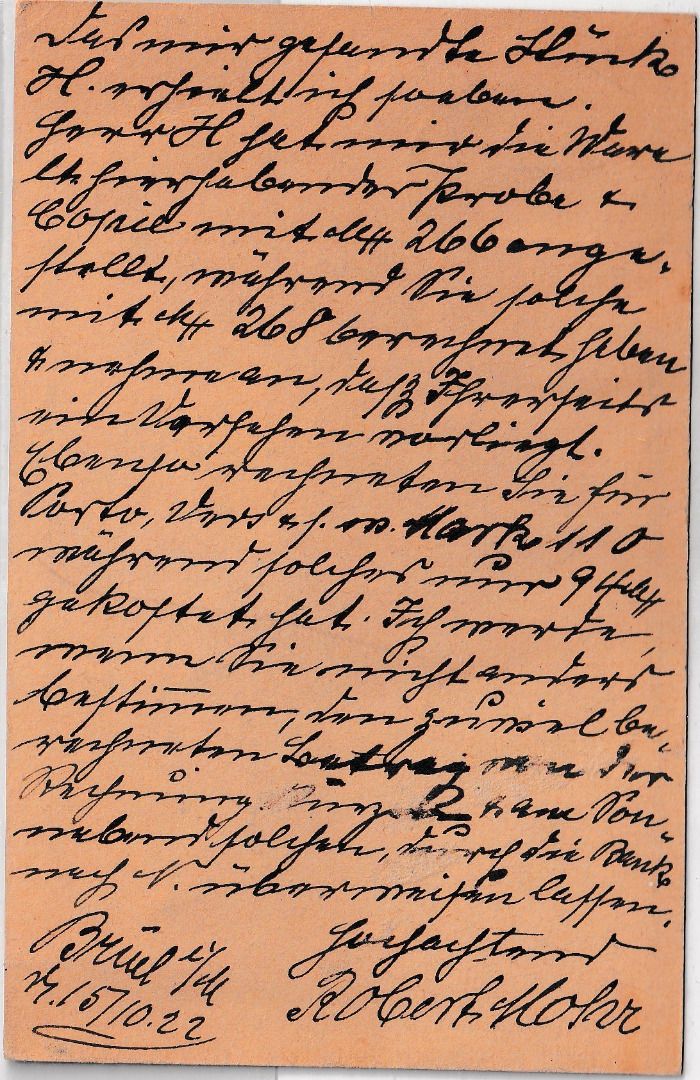 Das mir gesandte Stück
H. erhielt ich soeben.
Herr H hat mir die Ware
lt. hierhabender Probe &
Copie mit M 266 ange-
stellt, während Sie solche
mit M 268 berechnet haben
& nehme an, daß Ihrerseits
ein Versehen vorliegt.
Ebenso rechneten Sie für
Porto, Vers. Mark 110
während solches nur
gekostet hat. Ich werde,
wenn Sie nicht anders
bestimmen, den zuviel be-
rechneten Betrag von der
Rechnung & am Son-
nabend solchen, durch die Bank
nach N. überweisen lassen.
Hochachtend
Brüel i/M
d. 15/10.22
Robert Mohr